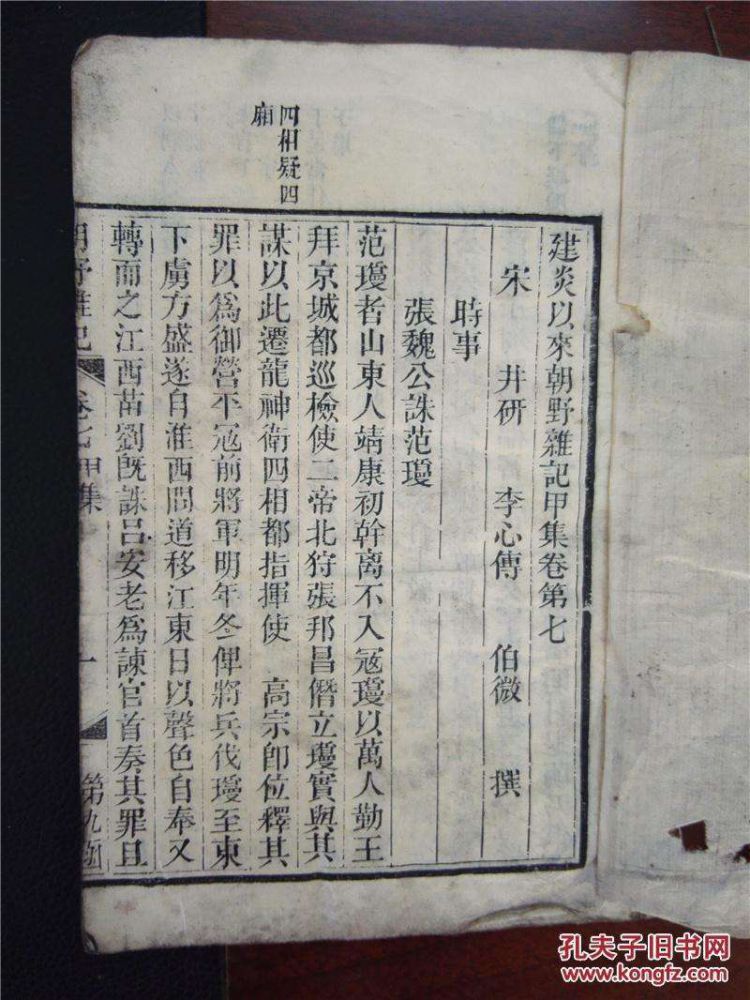 建炎以來朝野雜記甲集卷第七
宋 井研 李心傳 伯微 撰
時事
張魏公誅范瓊
范瓊者山東人靖康初幹离不入冦瓊以萬人勤王
拜京城都巡檢使二帝北狩張邦昌僭立瓊實與其
謀以此遷龍神衛四相都指揮使 高宗即位釋其
罪以爲御營平冦前將軍明年冬俾將兵伐瓊至東
下虜方盛遂自淮西間道移江東日以聲色自奉又
轉而之江西苗劉旣誅吕安老爲諫官首奏其罪且
朝野雜記 卷七 甲集 一 第九函
四相疑四
廂
孔夫子旧书网
www.kongfz.com